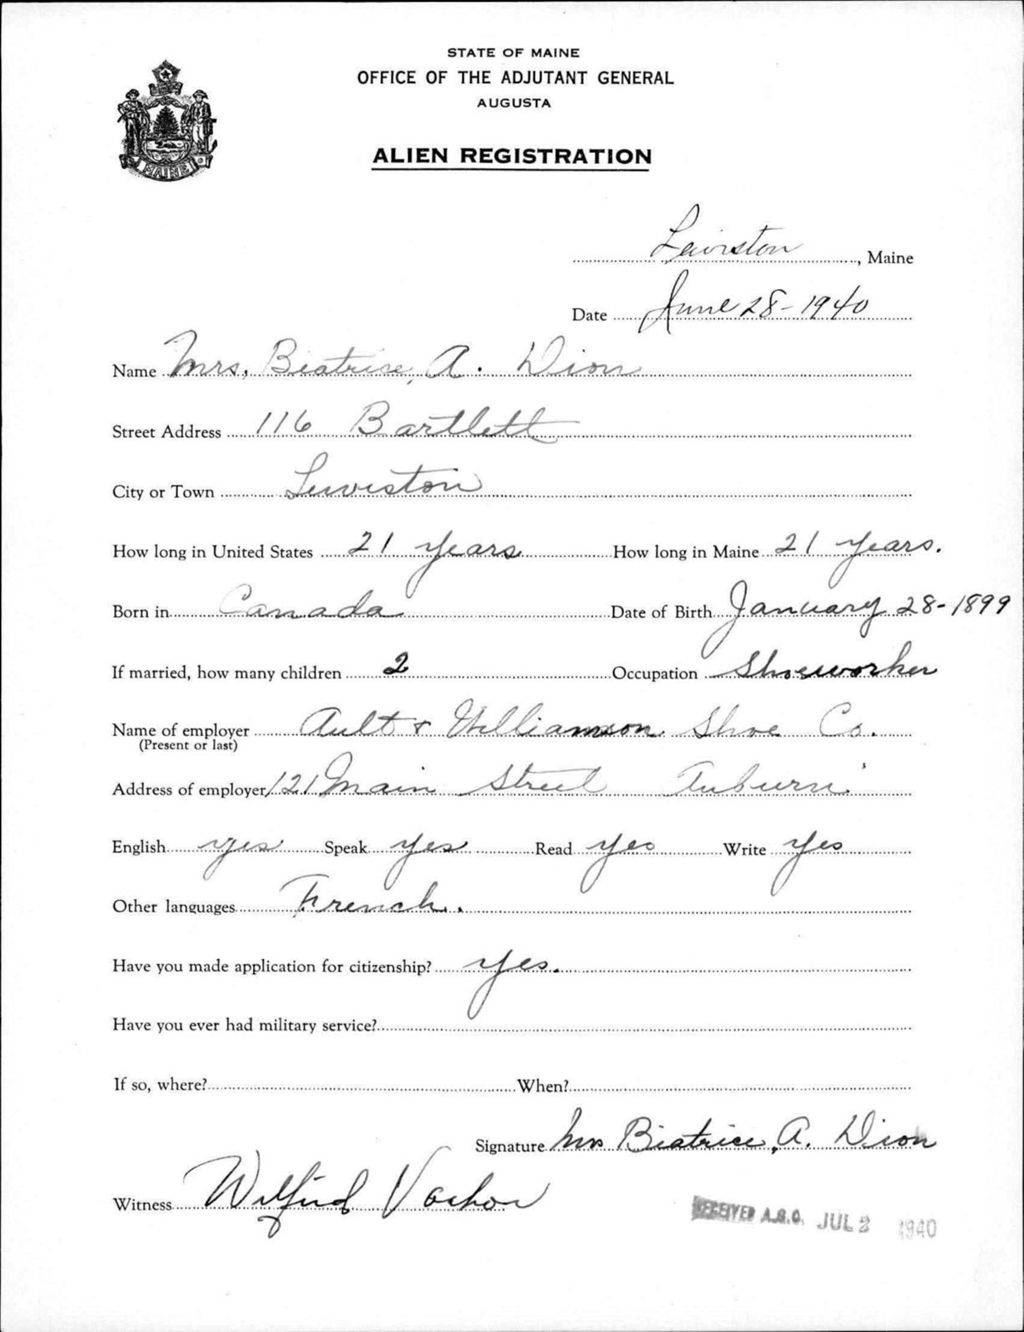 STATE OF MAINE
OFFICE OF THE ADJUTANT GENERAL
AUGUSTA
ALIEN REGISTRATION
MAINE
Lewiston, Maine
Date June 28-1940
Name Mrs. Beatrice, A. Dion
Street Address 116 Bartlett
City or Town Lewiston
How long in United States 21 years How long in Maine 21 years.
Born in Canada Date of Birth January 28-1899
If married, how many children 2 Occupation Shoeworker
Name of employer Ault & Williamson Shoe Co.
(Present or last)
Address of employer 121 Main Street Auburn
English yes Speak yes Read yes Write yes
Other languages French.
Have you made application for citizenship? yes.
Have you ever had military service?
If so, where? When?
Signature Mrs Beatrice, A. Dion
Witness Wilfrid Vachon
RECEIVED A.G.O. JUL 2 1940